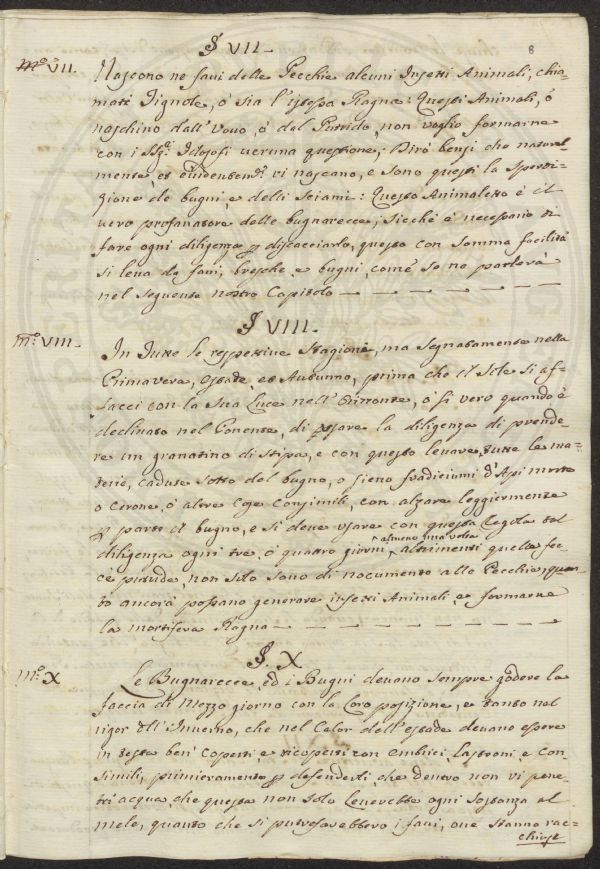 § VII.
8
mo VII.
Nascono ne favi delle Pecchie alcuni Insetti Animali, chia-
mati Tignole, ò sia l'istessa Ragna: Questi Animali, ò
naschino dall'Uovo, ò dal Putrido, non voglio formarne
con i SSri Filosofi veruna questione; Dirò bensi che natural-
mente et evidentemte vi nascano, e sono questi la sperdi-
zione de bugni, e delli sciami: Questo Animaletto è il
vero profanatore delle bugnarecce; Sicchè è necessario di
fare ogni diligenza p discacciarlo, questo con somma facilità
si leva da favi, bresche, e bugni, come se ne parlerà
nel seguente nostro Capitolo
§ VIII.
mo: VIII.
In Tutte le respettive Stagioni, ma segnatamente nella
Primavera, Estade, et Autunno, prima che il Sole si af-
facci con la sua Luce nell'Orrizonte, o si vero quando è
declinato nel Ponente, di usare la diligenza di prende-
re un granatino di Stipa, e con questo levare tutte le ma-
terie, cadute sotto del bugno, o sieno fradiciumi d'Api morte
o Cerone, ò altre Cose Consimili, con alzare leggiermente
p parti il bugno, e si deve usare con questa Regola tal
diligenza ogni tre, o quattro giorni, almeno una volta altrimenti quelle fec-
cie putride, non solo sono di nocumento alle Pecchie, quan-
to ancora possano generare insetti Animali, e formarne
la mortifera Ragna
§. X
mo. X
Le Bugnarecce, ed i Bugni devano sempre godere la
faccia di Mezzo giorno con la loro posizione, e tanto nel
rigor dell'Inverno, che nel Calor dell'estade devano essere
in testa ben' Coperti, e ricoperti con embrici, lastroni, e Con-
simili, primieramente p defenderli, che dentro non vi pene-
tri acqua, che questa non solo leverebbe ogni sostanza al
mele, quanto che si putrefarebbero i favi, ove stanno rac-
chiuse